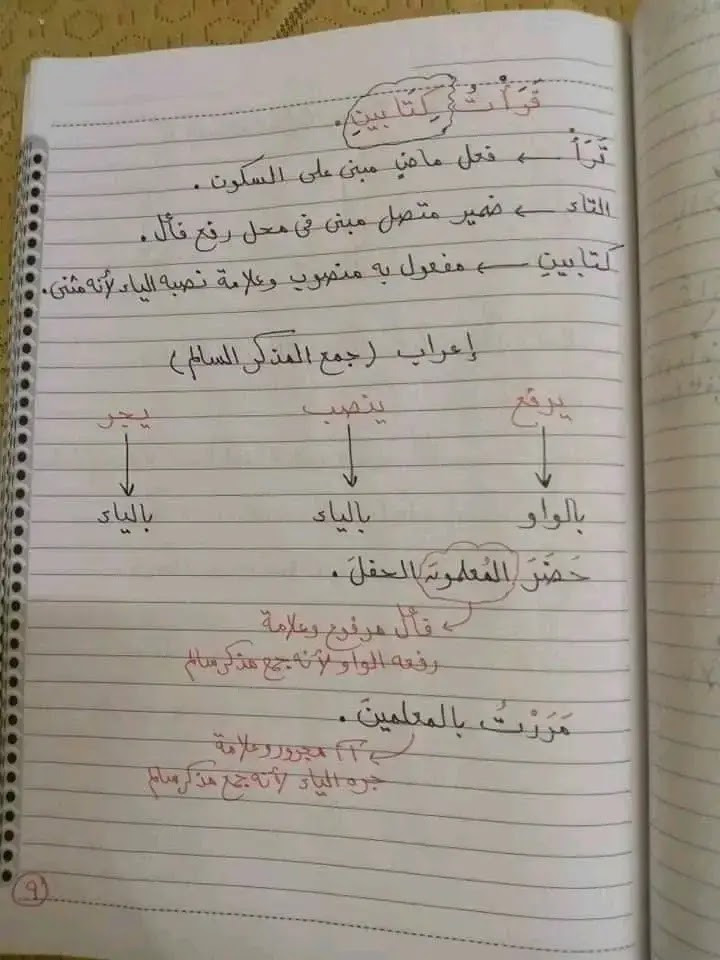 قَرَأْتُ كِتَابَينِ .
قَرَأ ← فعل ماضٍ مبنى على السكون .
التاء ← ضمير متصل مبنى فى محل رفع فاعل .
كتابينِ ← مفعول به منصوب وعلامة نصبه الياء لأنه مثنى .
إعراب (جمع المذكر السالم)
يرفع ينصب يجر
بالواو بالياء بالياء
حَضَرَ المُعلمونَ الحفلَ .
فاعل مرفوع وعلامة
رفعه الواو لأنه جمع مذكر سالم
مَرَرْتُ بالمعلمينَ .
مجرور وعلامة
جره الياء لأنه جمع مذكر سالم
٩